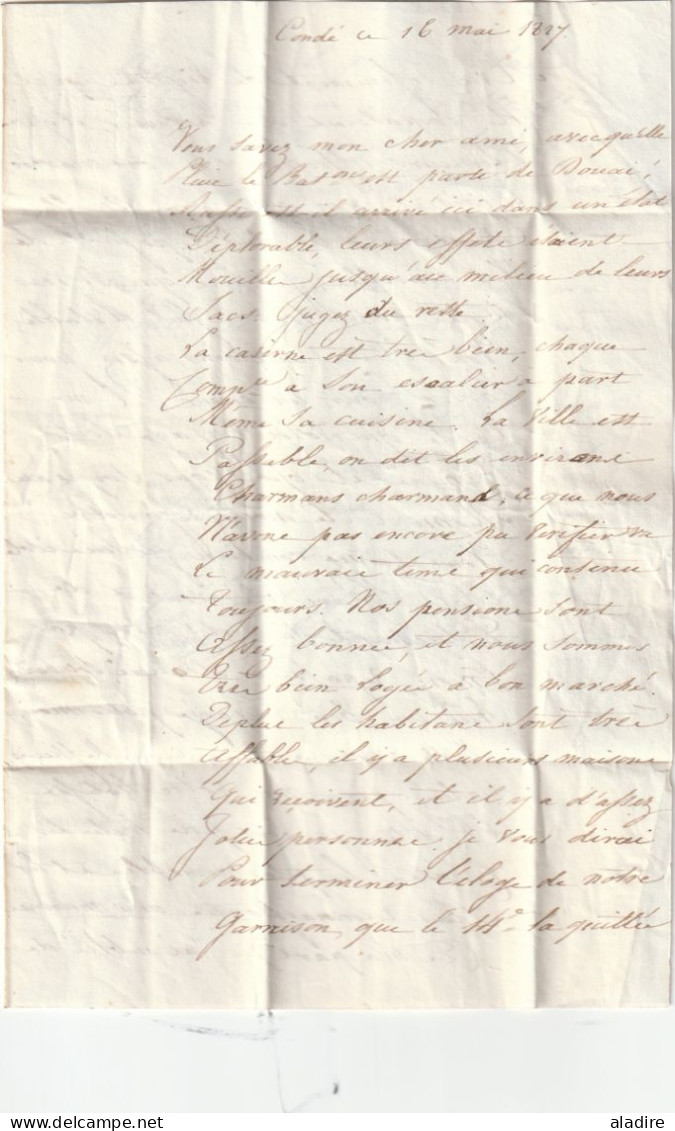 Condé ce 16 mai 1827.
Vous savez mon cher ami, avec quelle
Pluie le Baton est parti de Douai,
Aussi est il arrivé ici dans un état
Déplorable, leurs effets étaient
Mouillés jusqu'au milieu de leurs
Sacs. jugez du reste
La caserne est très bien, chaque
Comp.ie a son escalier a part
Même sa cuisine. La Ville est
Passable, on dit les environs
Charmans charmans, ce que nous
N'avons pas encore pu Vérifier vu
Le mauvais tems qui continue
Toujours. Nos pensions sont
Assez bonnes, et nous sommes
Très bien logés a bon marché.
De plus les habitans sont très
Affables, il y a plusieurs maisons
Qui reçoivent, et il y a d'assez
Jolies personnes. je Vous dirai
Pour terminer l'éloge de notre
Garnison, que le 14e l'a quittée
aladire